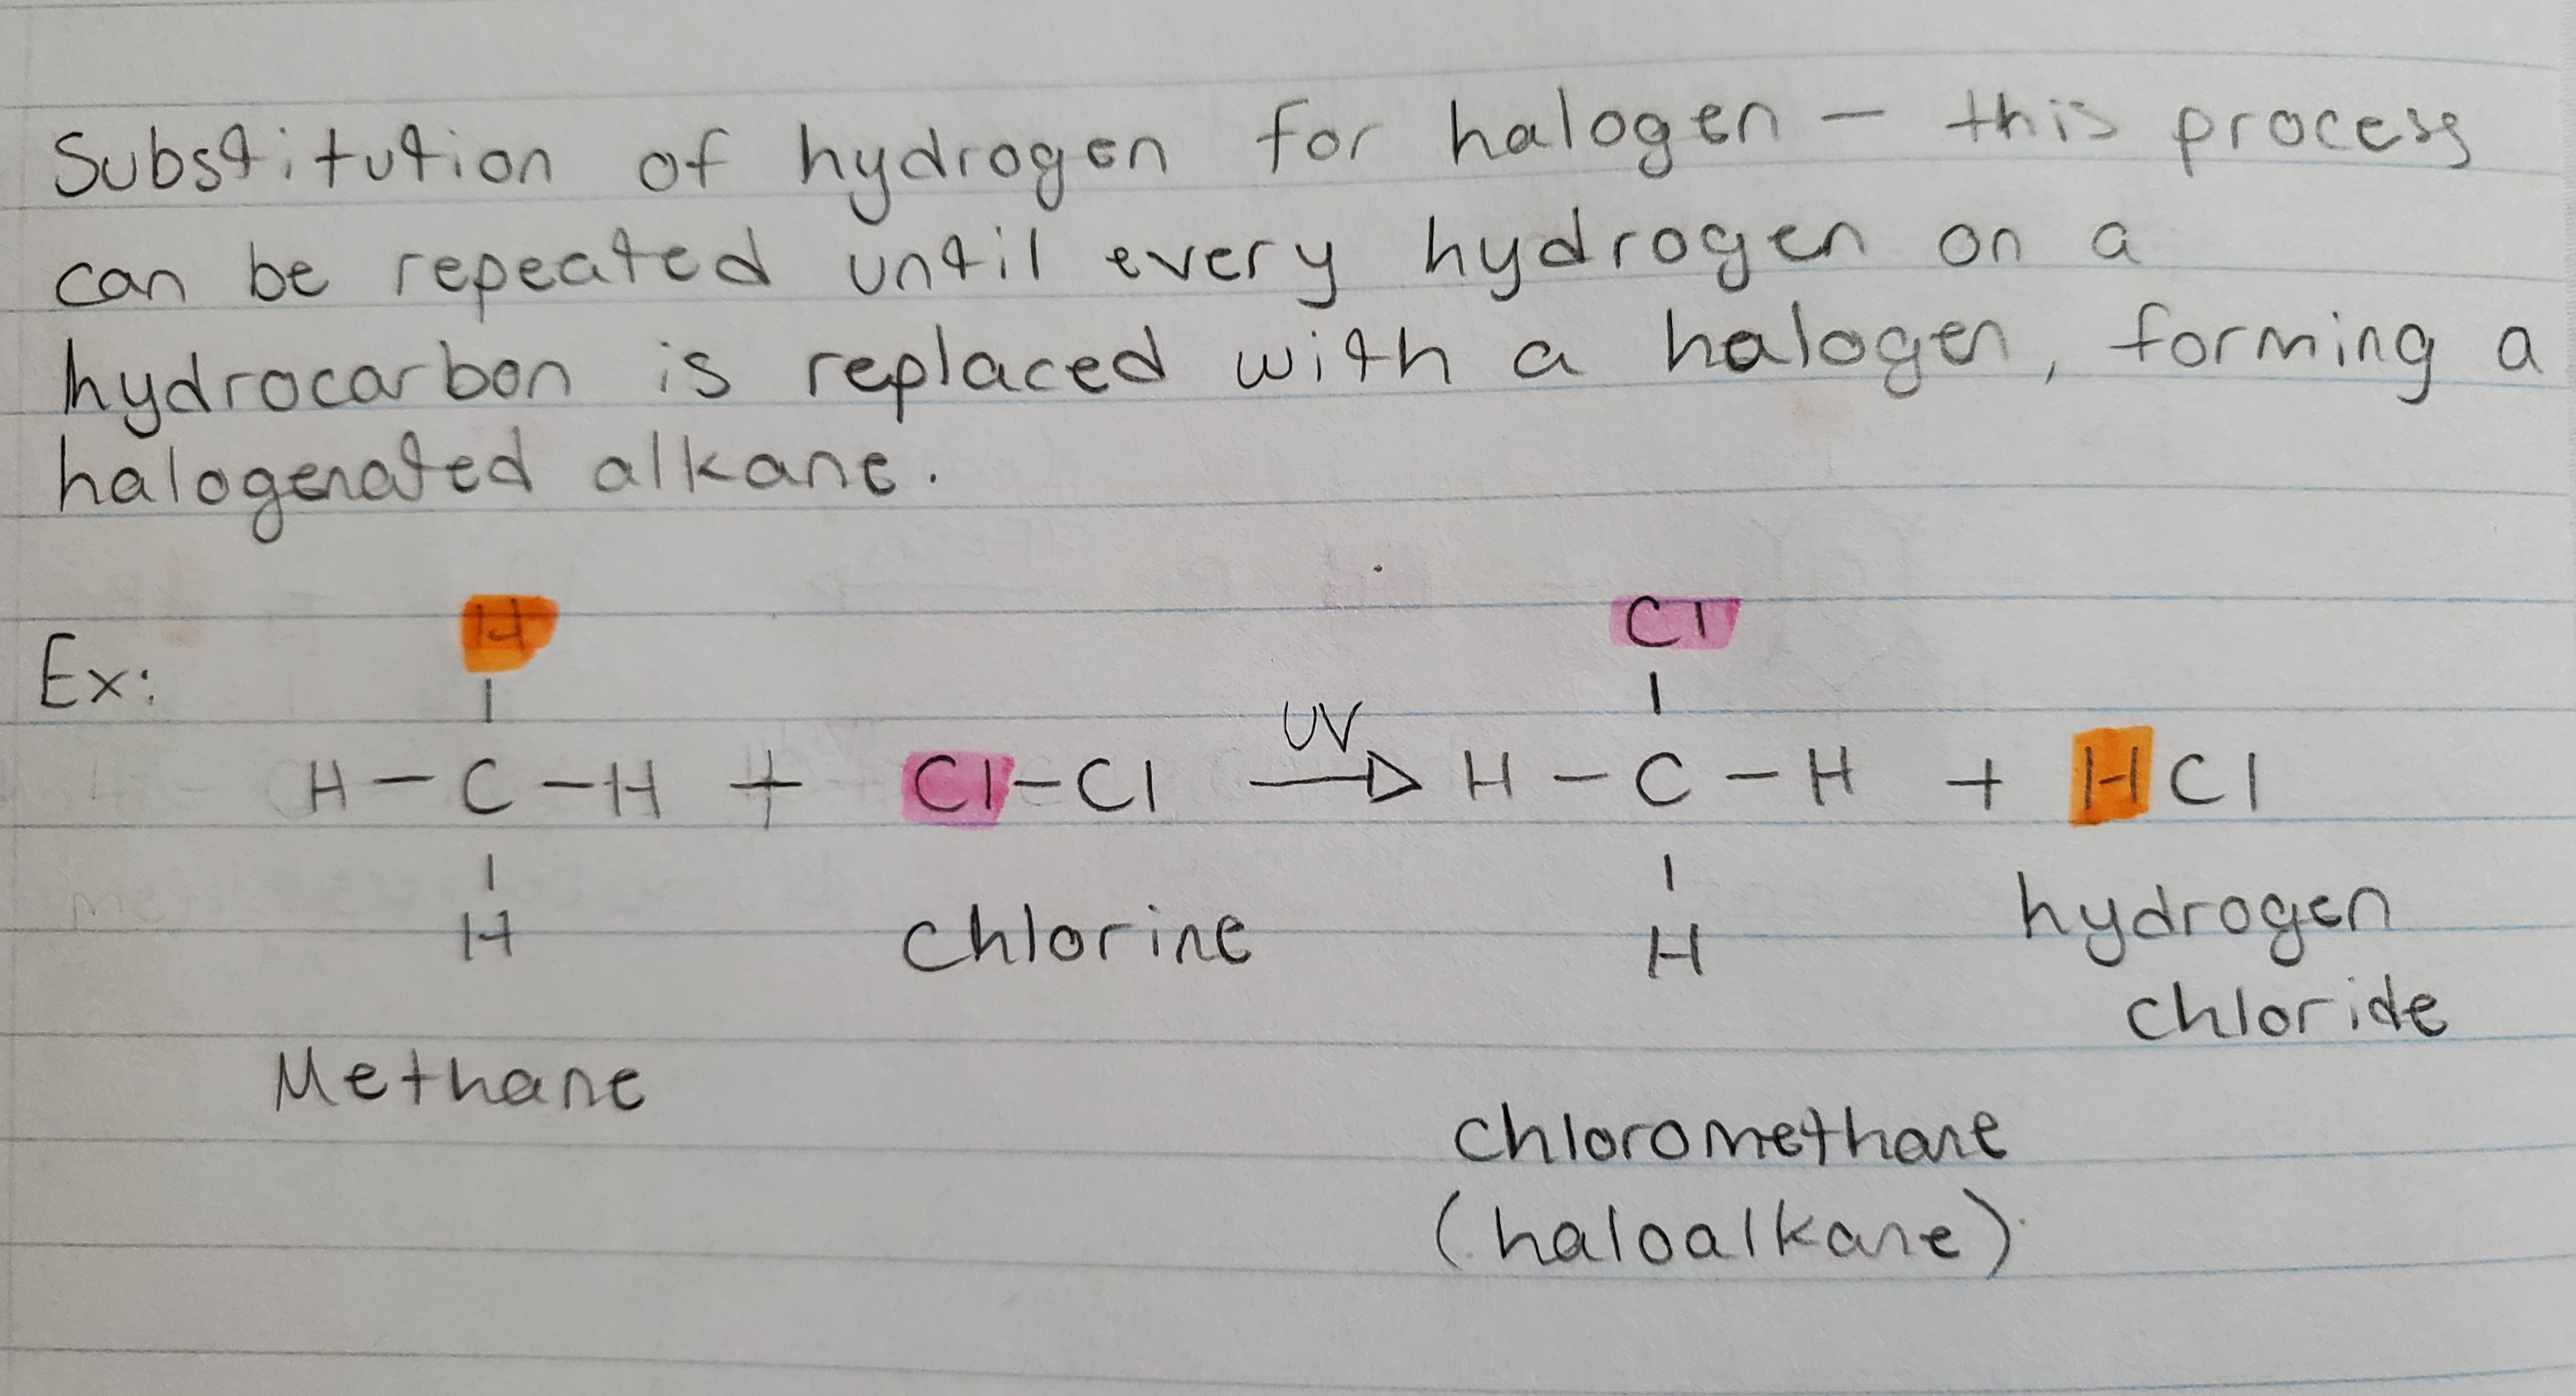 Substitution of hydrogen for halogen — this process
can be repeated until every hydrogen on a
hydrocarbon is replaced with a halogen, forming a
halogenated alkane.
H Cl
Ex: | UV |
H - C - H + Cl - Cl → H - C - H + HCl
| |
H chlorine H hydrogen
chloride
Methane
chloromethane
(haloalkane)